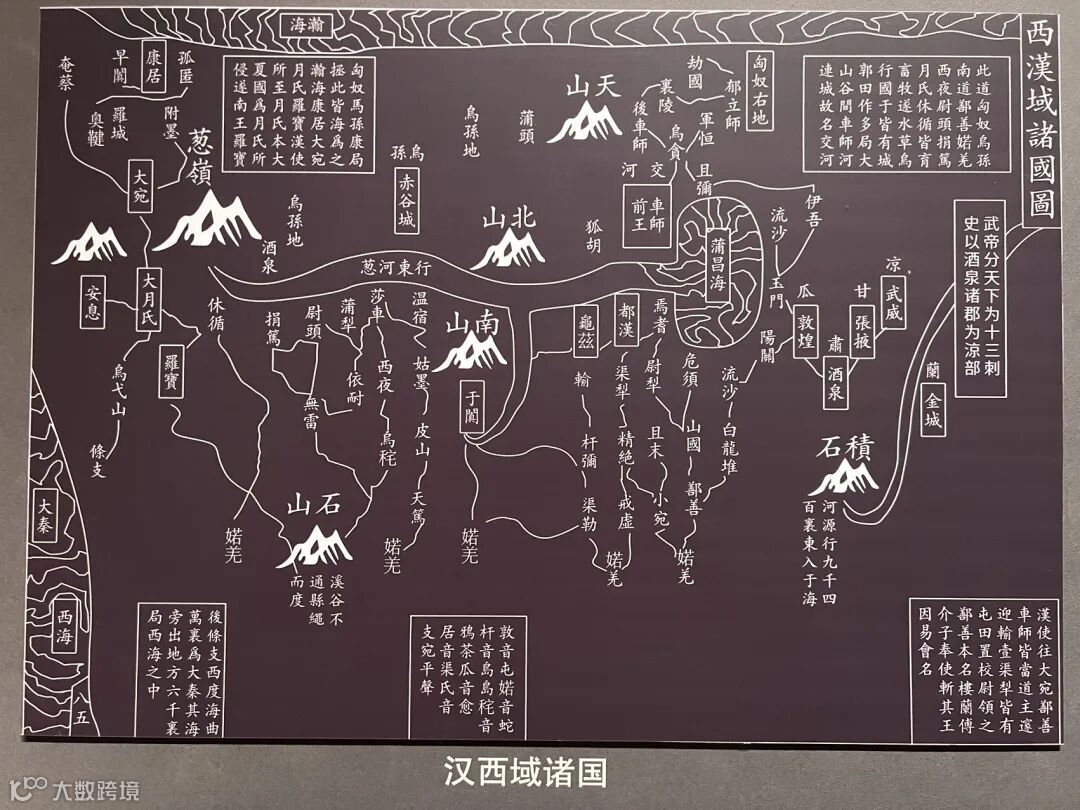 西漢域諸國圖
此道匈奴烏孫
南道鄯善婼羌
西夜尉頭捐篤
月氏休循皆育
畜牧遂水草烏
行國于皆有城
郭田作多局大
山谷間車師河
連城故名交河
武帝分天下为十三刺
史以酒泉诸郡为涼部
瀚海
匈奴右地
劫國
郁立師
襄陵
後車師
軍恒
烏貪
且彌
交河
車師
前王
天山
蒲頭
烏孫地
烏孫
赤谷城
北山
狐胡
蒲昌海
伊吾
流沙
玉門
陽關
流沙
白龍堆
瓜
敦煌
肅
酒泉
甘
張掖
涼
武威
蘭
金城
積石
河源行九千四
百裏東入于海
匈奴馬孫康局
拯此皆海爲之
瀚海康居大宛
月氏羅寶漢使
所至月氏本大
夏國爲月氏所
侵遂南王羅寶
孤匿
康居
早闐
奄蔡
羅城
奥鞬
附墨
葱嶺
大宛
烏孫地
酒泉
葱河東行
大月氏
安息
羅寶
烏弋山
條支
休循
婼羌
捐篤
尉頭
蒲犁
依耐
無雷
莎車
西夜
烏秅
石山
溪谷不
通縣繩
而度
温宿
姑墨
皮山
天篤
婼羌
南山
于闐
婼羌
龜茲
輸
杆彌
渠勒
都漢
渠犁
精絶
戒虚
婼羌
焉耆
尉犁
且末
小宛
婼羌
危須
山國
鄯善
大秦
西海
八五
漢使往大宛鄯善
車師皆當道主邃
迎輸壹渠犁皆有
屯田置校尉領之
鄯善本名樓蘭傅
介子奉使斬其王
因易會名
敦音屯婼音蛇
杆音島島秅音
鴉茶瓜音愈
居音渠氏音
支宛平聲
後條支西度海曲
萬裏爲大秦其海
旁出地方六千裏
局西海之中
汉西域诸国
大数跨境